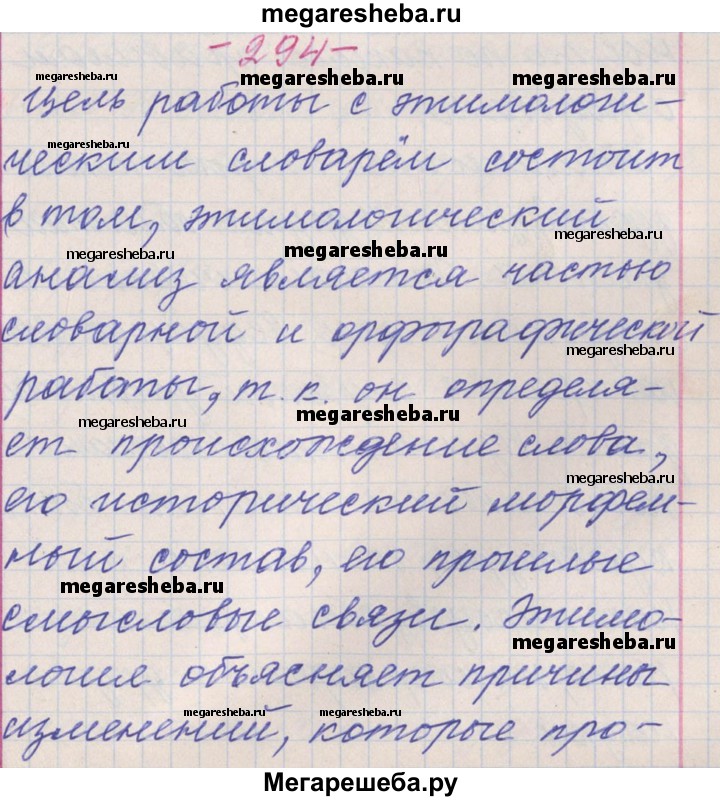 megaresheba.ru
-294-
megaresheba.ru megaresheba.ru megaresheba.ru
Цель работы с этимологи-
megaresheba.ru
ческим словарём состоит
в том, этимологический
megaresheba.ru megaresheba.ru megaresheba.ru
анализ является частью
словарной и орфографической
megaresheba.ru
работы, т. к. он определя-
megaresheba.ru megaresheba.ru
ет происхождение слова,
megaresheba.ru
его исторический морфем-
ный состав, его прошлые
megaresheba.ru
смысловые связи. Этимо-
megaresheba.ru
логия объясняет причины
megaresheba.ru megaresheba.ru
изменений, которые про-
Мегарешеба.ру